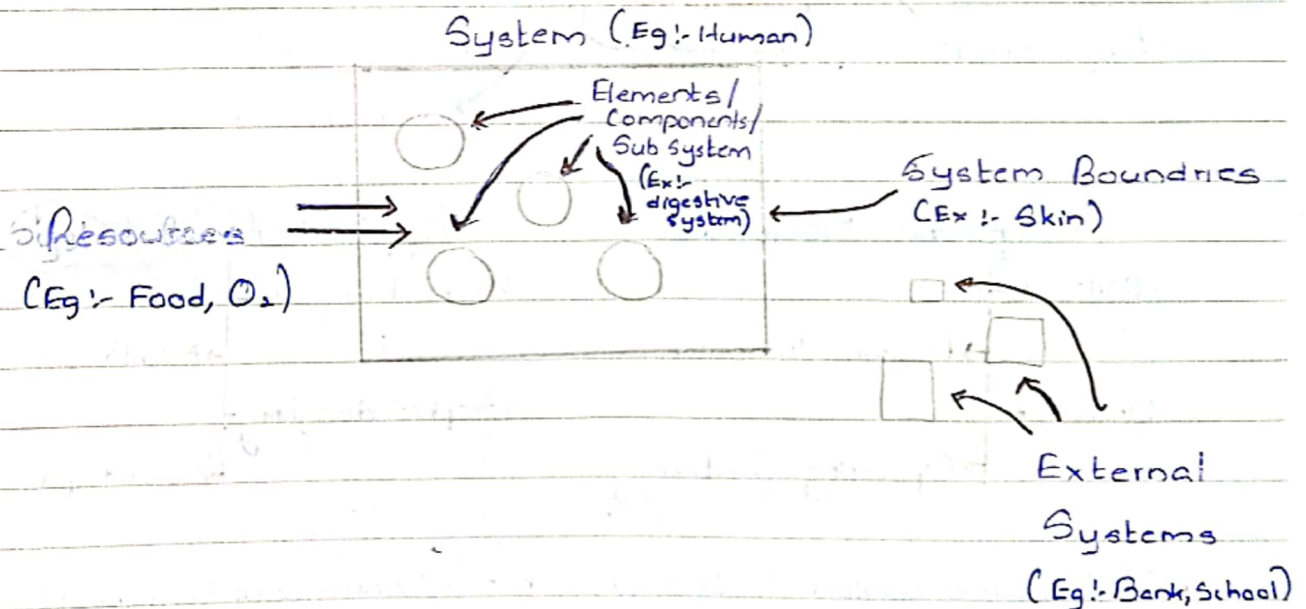 System (Eg:- Human)
Elements/
Components/
Sub System
(Ex:-
digestive
system)
System Boundries
(Ex:- Skin)
Resources
(Eg:- Food, O₂)
External
Systems
(Eg:- Bank, School)